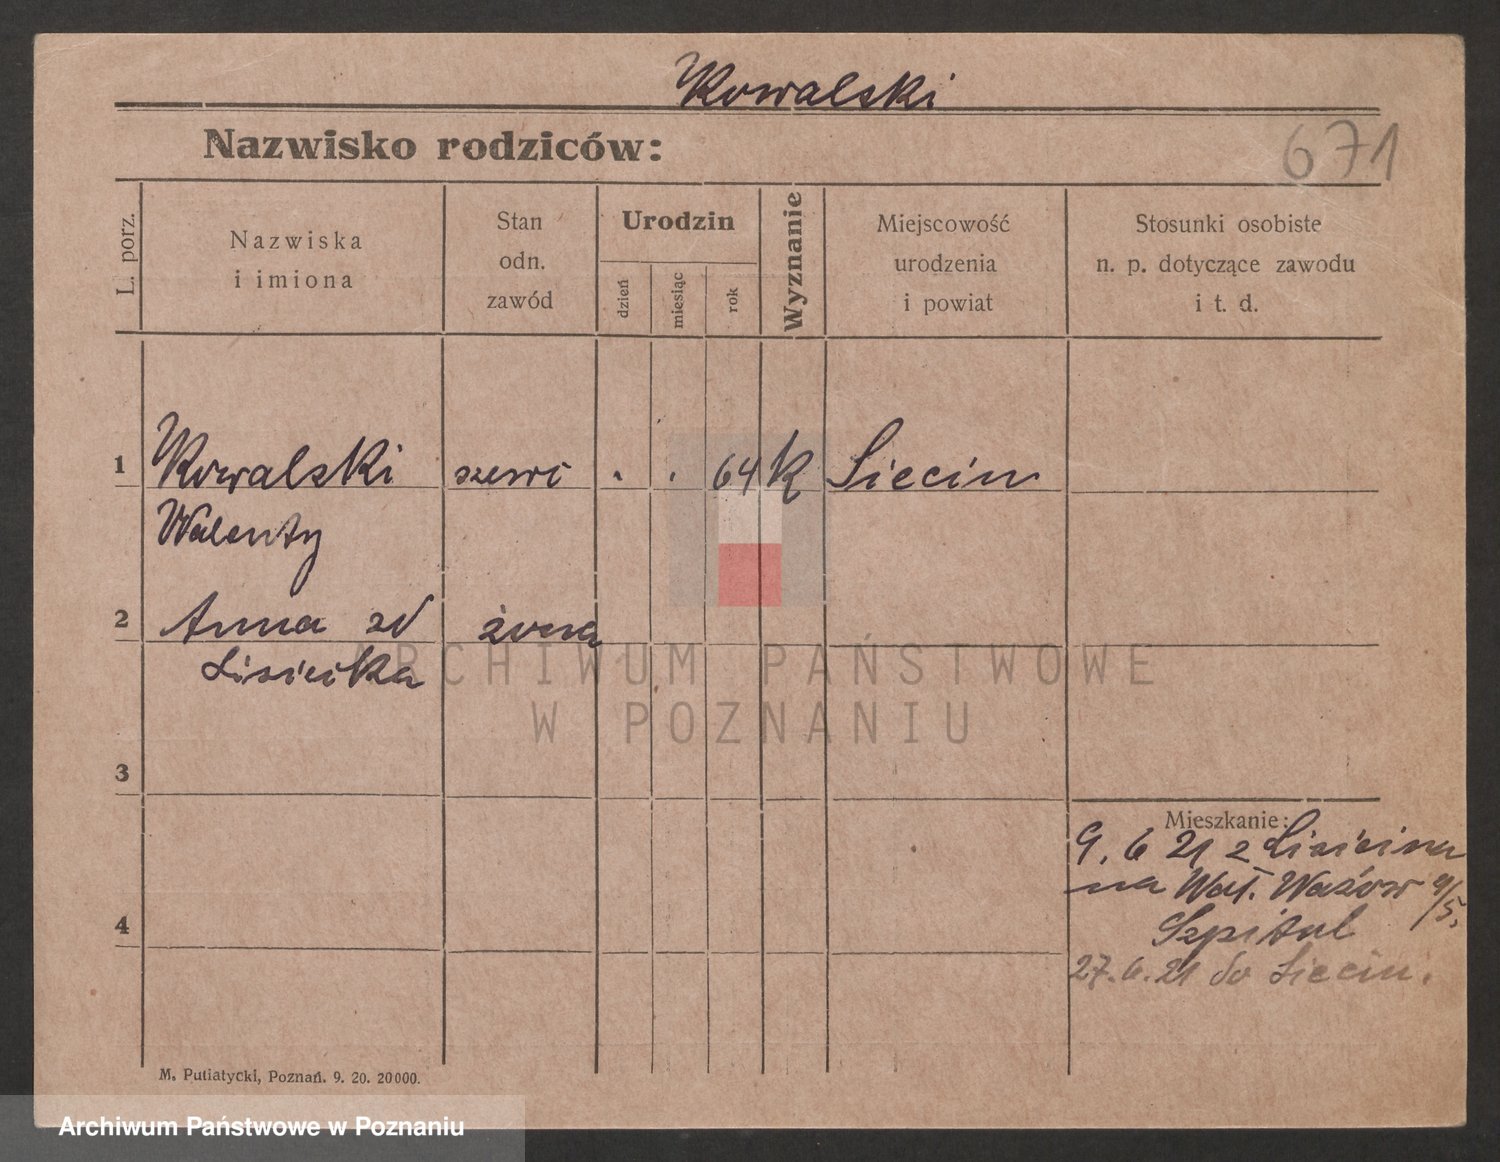 Kowalski
Nazwisko rodziców:
671
L. porz.
Nazwiska
i imiona
Stan
odn.
zawód
Urodzin
dzień
miesiąc
rok
Wyznanie
Miejscowość
urodzenia
i powiat
Stosunki osobiste
n. p. dotyczące zawodu
i t. d.
1
Kowalski szewc . . 64 k Siecin
Walenty
2
Anna zd żona
Lisiecka
ARCHIWUM PAŃSTWOWE
W POZNANIU
3
Mieszkanie:
9. 6 21 z
na Wał. Wazów 9/5,
4
Szpital
27. 6. 21 do Siecin.
M. Putiatycki, Poznań. 9. 20. 20000.
Archiwum Państwowe w Poznaniu